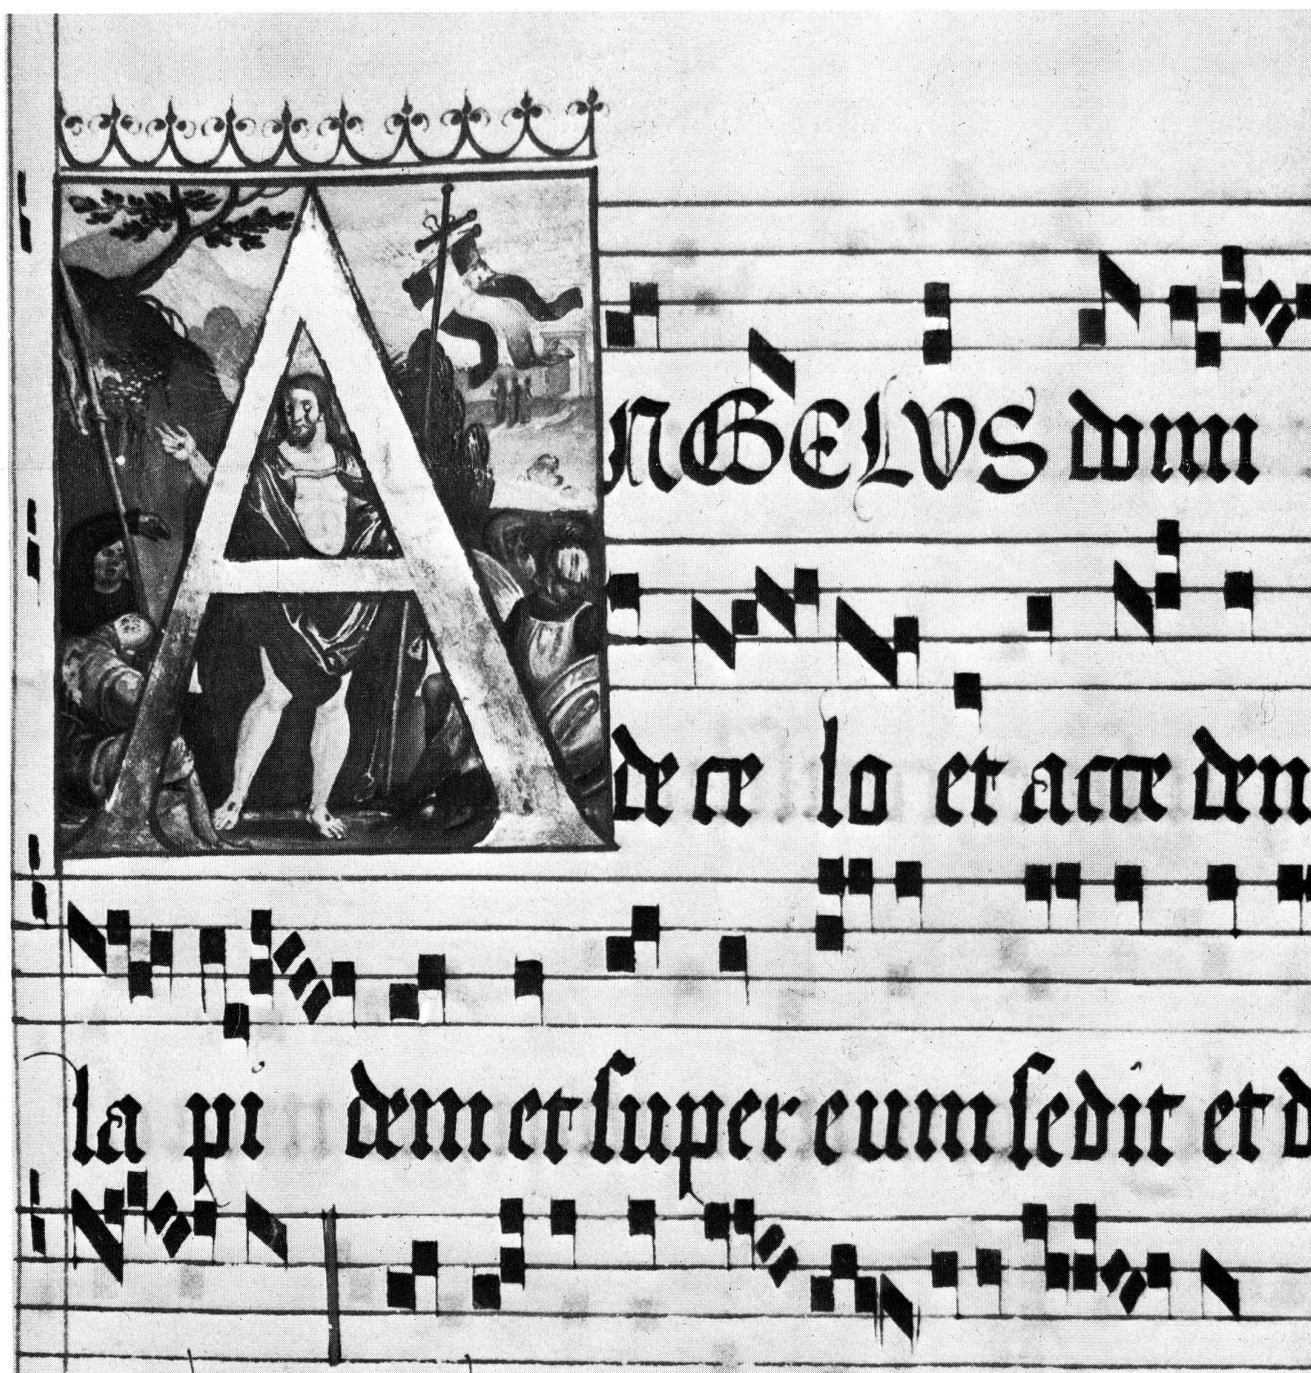 ANGELVS domi
de ce lo et acce den
la pi dem et super eum sedit et d